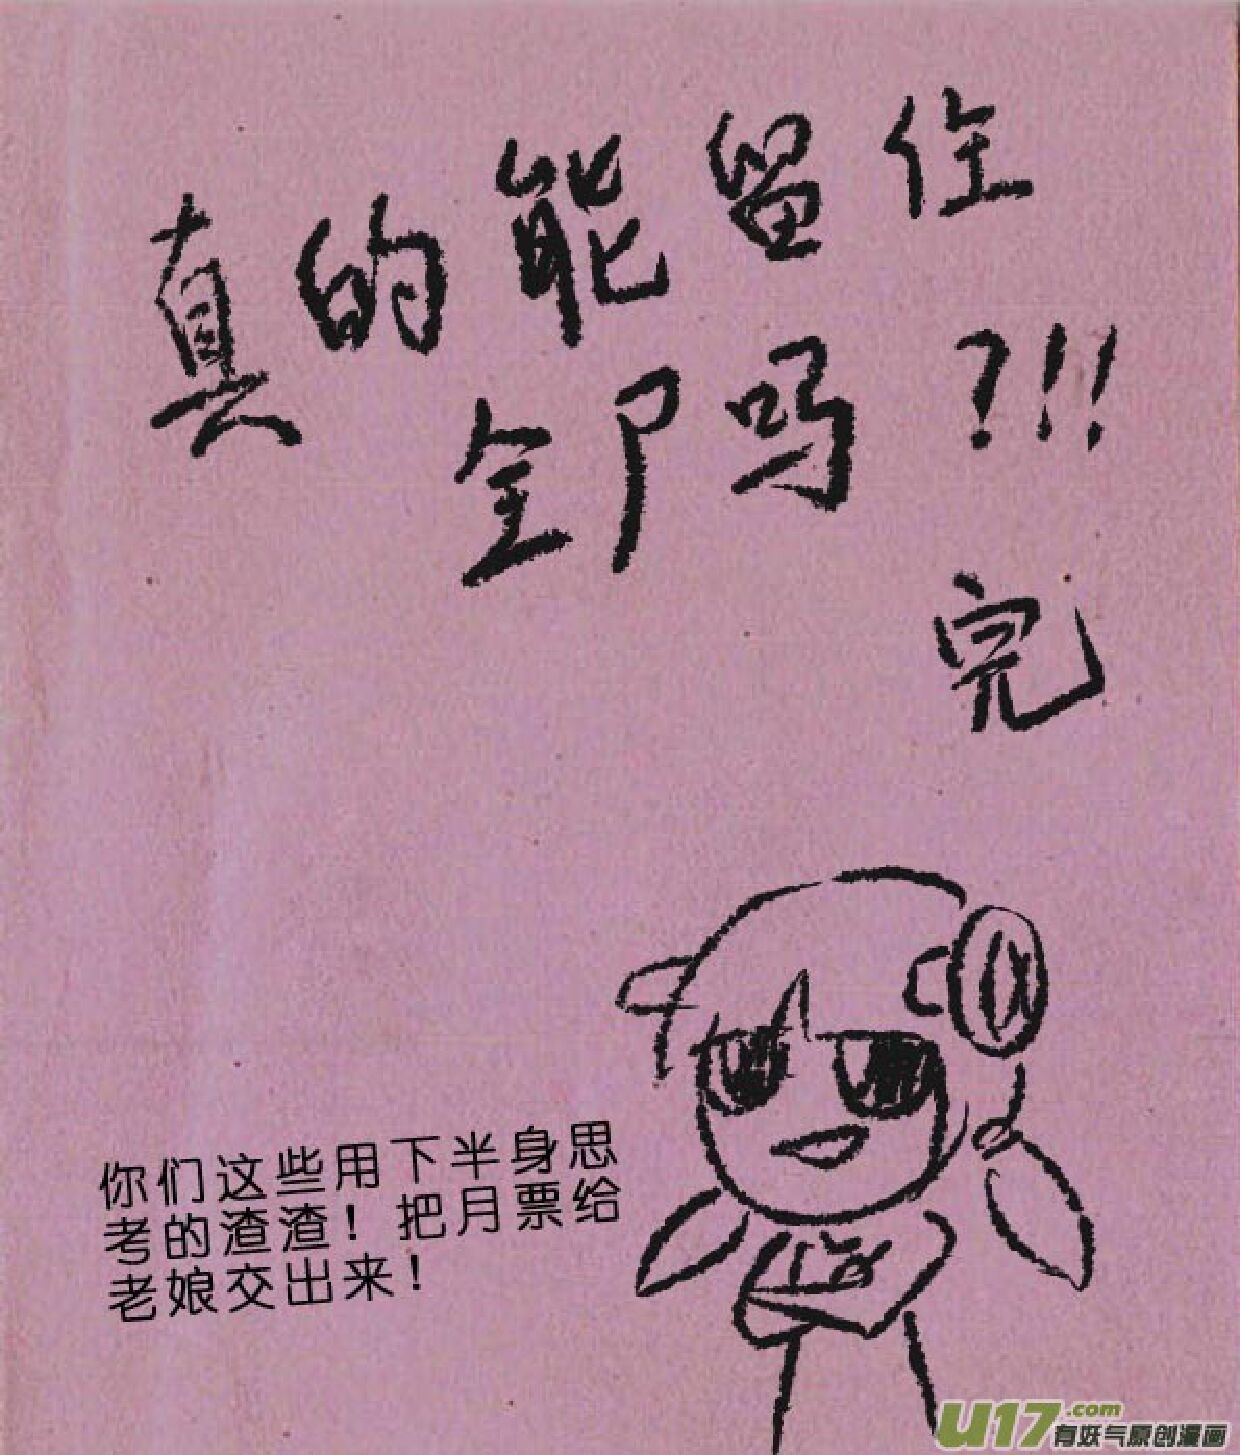 真的能留住
全尸吗?!!
完
你们这些用下半身思
考的渣渣！把月票给
老娘交出来！
U17.com
有妖气原创漫画